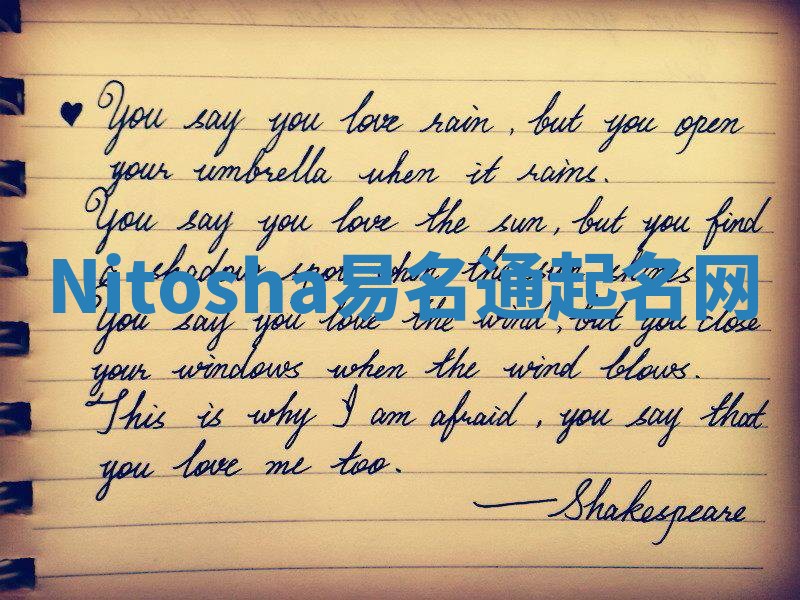 ♥ You say you love rain, but you open
your umbrella when it rains.
You say you love the sun, but you find
a shadow spot when the sun shines
Nitosha易名通起名网
You say you love the wind, but you close
your windows when the wind blows.
This is why I am afraid, you say that
you love me too.
—Shakespeare